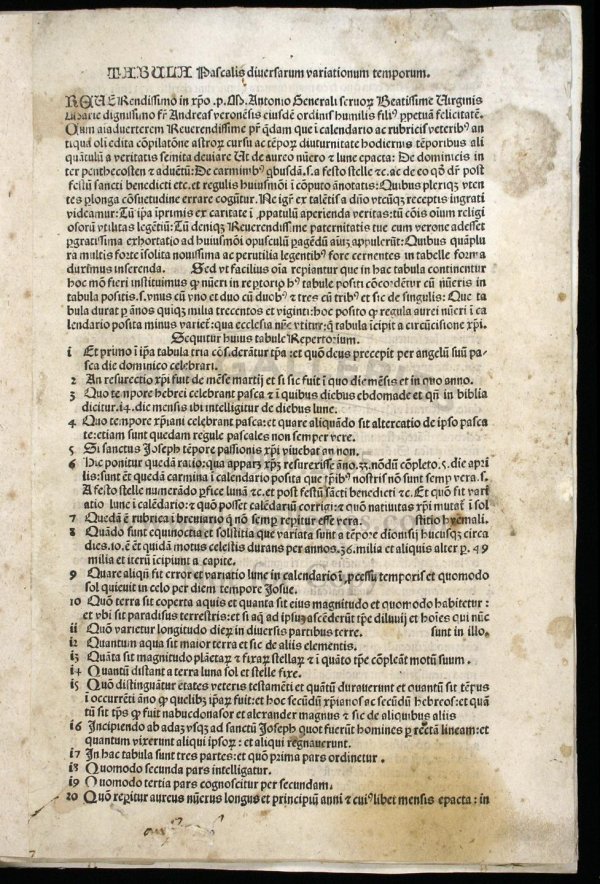 TABULA Pascalis diversarum variationum temporum.
Rendissimo in xp̄o .p. M. Antonio Generali seruorꝝ Beatissime Uirginis
dignissimo fr̄ Andreas veronēsis eiusdē ordinis humilis filiꝰ ꝑpetuā felicitatē.
Cum aīaduerterem Reuerendissime pr̄ q̄dam que ī calendario ac rubricis veteribꝰ an
tiqua oli edita cōpilatōne astrorꝝ cursu ac tēporꝝ diuturnitate hodiernis tēporibus ali
quātulū a veritatis semita deuiare Ut de aureo nūero ⁊ lune epacta: De dominicis in
ter penthecosten ⁊ aduētū: De carminibꝰ q̄busdā.s.a festo stelle ⁊c. ac de eo qd̄ dr̄ post
festū sancti benedicti etc. et regulis huiusmōi ī cōputo ānotatis: Quibus pleriqꝫ vten
tes ꝑlonga cōsuetudine errare cogūtur. Ne igr̄ ex talētis a dn̄o vtcūqꝫ receptis ingrati
videamur: Tū ip̄a īprimis ex caritate ī ꝓpatulū aperienda veritas: tū cōis oīum religi
osorū vtilitas legētiū: Tū deniqꝫ Reuerendissime paternitatis tue cum verone adesset
ꝑgratissima exhortatio ad huiusmōi opusculū ꝑagēdū aīuꝫ appulerūt: Quibus quāplu
ra multis forte isolita nouissima ac perutilia legentibꝰ fore cernentes in tabelle forma
durimus inserenda. Sed vt facilius oīa repiantur que in hac tabula continentur
hoc mō fieri instituimus ꝙ nūeri in reptorio hꝰ tabule positi cōcordētur cū nūeris in
tabula positis.s.vnus cū vno et duo cū duobꝰ ⁊ tres cū tribꝰ et sic de singulis: Que ta
bula durat ꝑ ānos quiqꝫ milia trecentos et viginti: hoc posito ꝙ regula aurei nūeri ī ca
lendario posita minus varieť: qua ecclesia nūc vtitur: q̄ tabula īcipit a circūcisione xp̄i.
Sequitur huius tabule Repertorium.
1 Et primo ī ip̄a tabula tria cōsiderātur tp̄a: et quō deus precepit per angelū suū pa-
sca die dominico celebrari.
2 An resurectio xp̄i fuit de mēse martij et si sic fuit ī quo die mēsis et in quo anno.
3 Quo tempore hebrei celebrant pasca ⁊ ī quibus diebus ebdomade et qn̄ in biblia
dicitur.14.die mensis ibi intelligitur de diebus lune.
4 Quo tempore xp̄iani celebrant pasca: et quare aliquādo sit altercatio de ipso pasca
te: etiam sunt quedam regule pascales non semper vere.
5 Si sanctus Joseph tēpore passionis xp̄i viuebat an non.
6 Hic ponitur quedā ratio: qua appar̄ xp̄ꝫ resurexisse āno.33.nōdū cōpleto.5.die apri
lis: sunt ēt quedā carmina ī calēdario posita que tp̄ibꝰ nostris nō sunt semp̄ vera.s.
A festo stelle numerādo ꝑfice lunā ⁊c. et post festū sācti benedicti ⁊c. Et quō fit vari
atio lune ī calēdario: ⁊ quō posset calēdariū corrigi: ⁊ quō natiuitas xp̄i mutať ī sol
7 Quedā ē rubrica ī breuiario q̄ nō semp̄ repitur esse vera. stitio hyemali.
8 Quādo sunt equinoctia et solstitia que variata sunt a tēpore dionisij hucusqꝫ circa
dies.10.ē ēt quidā motus celestis durans per annos.36.milia et aliquis alter ꝑ. 49
milia et iterū īcipiunt a capite.
9 Quare aliqn̄ fit error et variatio lune in calendario ī ꝓcessu temporis et quomodo
sol quieuit in celo per diem tempore Josue.
10 Quō terra sit coperta aquis et quanta sit eius magnitudo et quomodo habitetur:
et vbi sit paradisus terrestris: et si aq̄ ad ipsuꝫ ascēderūt tp̄e diluuij et hoīes qui nūc
11 Quō varietur longitudo dierꝝ in diuersis partibus terre. sunt in illo.
12 Quantum aqua sit maior terra et sic de aliis elementis.
13 Quāta sit magnitudo plāetarꝝ ⁊ fixarꝝ stellarꝝ ⁊ ī quāto tp̄e cōpleāt motū suum.
14 Quantū distant a terra luna sol et stelle fixe.
15 Quō distinguātur etates veteris testamēti et quātū durauerunt et quantū sit tēpus
ī occurrēti āno ꝙ quelibꝫ ip̄arꝝ fuit: et hoc secūdū xp̄ianos ac secūdū hebreos: et quā
tū sit tp̄s ꝙ fuit nabucdonasor et alexander magnus ⁊ sic de aliquibus aliis
16 Incipiendo ab adaꝫ vsqꝫ ad sanctū Joseph quot fuerūt homines ꝑ rectā lineam: et
quantum vixerunt aliqui ipsorꝝ: et aliqui regnauerunt.
17 In hac tabula sunt tres partes: et quō prima pars ordinetur.
18 Quomodo secunda pars intelligatur.
19 Quomodo tertia pars cognoscitur per secundam.
20 Quō reꝑitur aureus nūerus longus et principiū anni ⁊ cuiꝰlibet mensis epacta: in